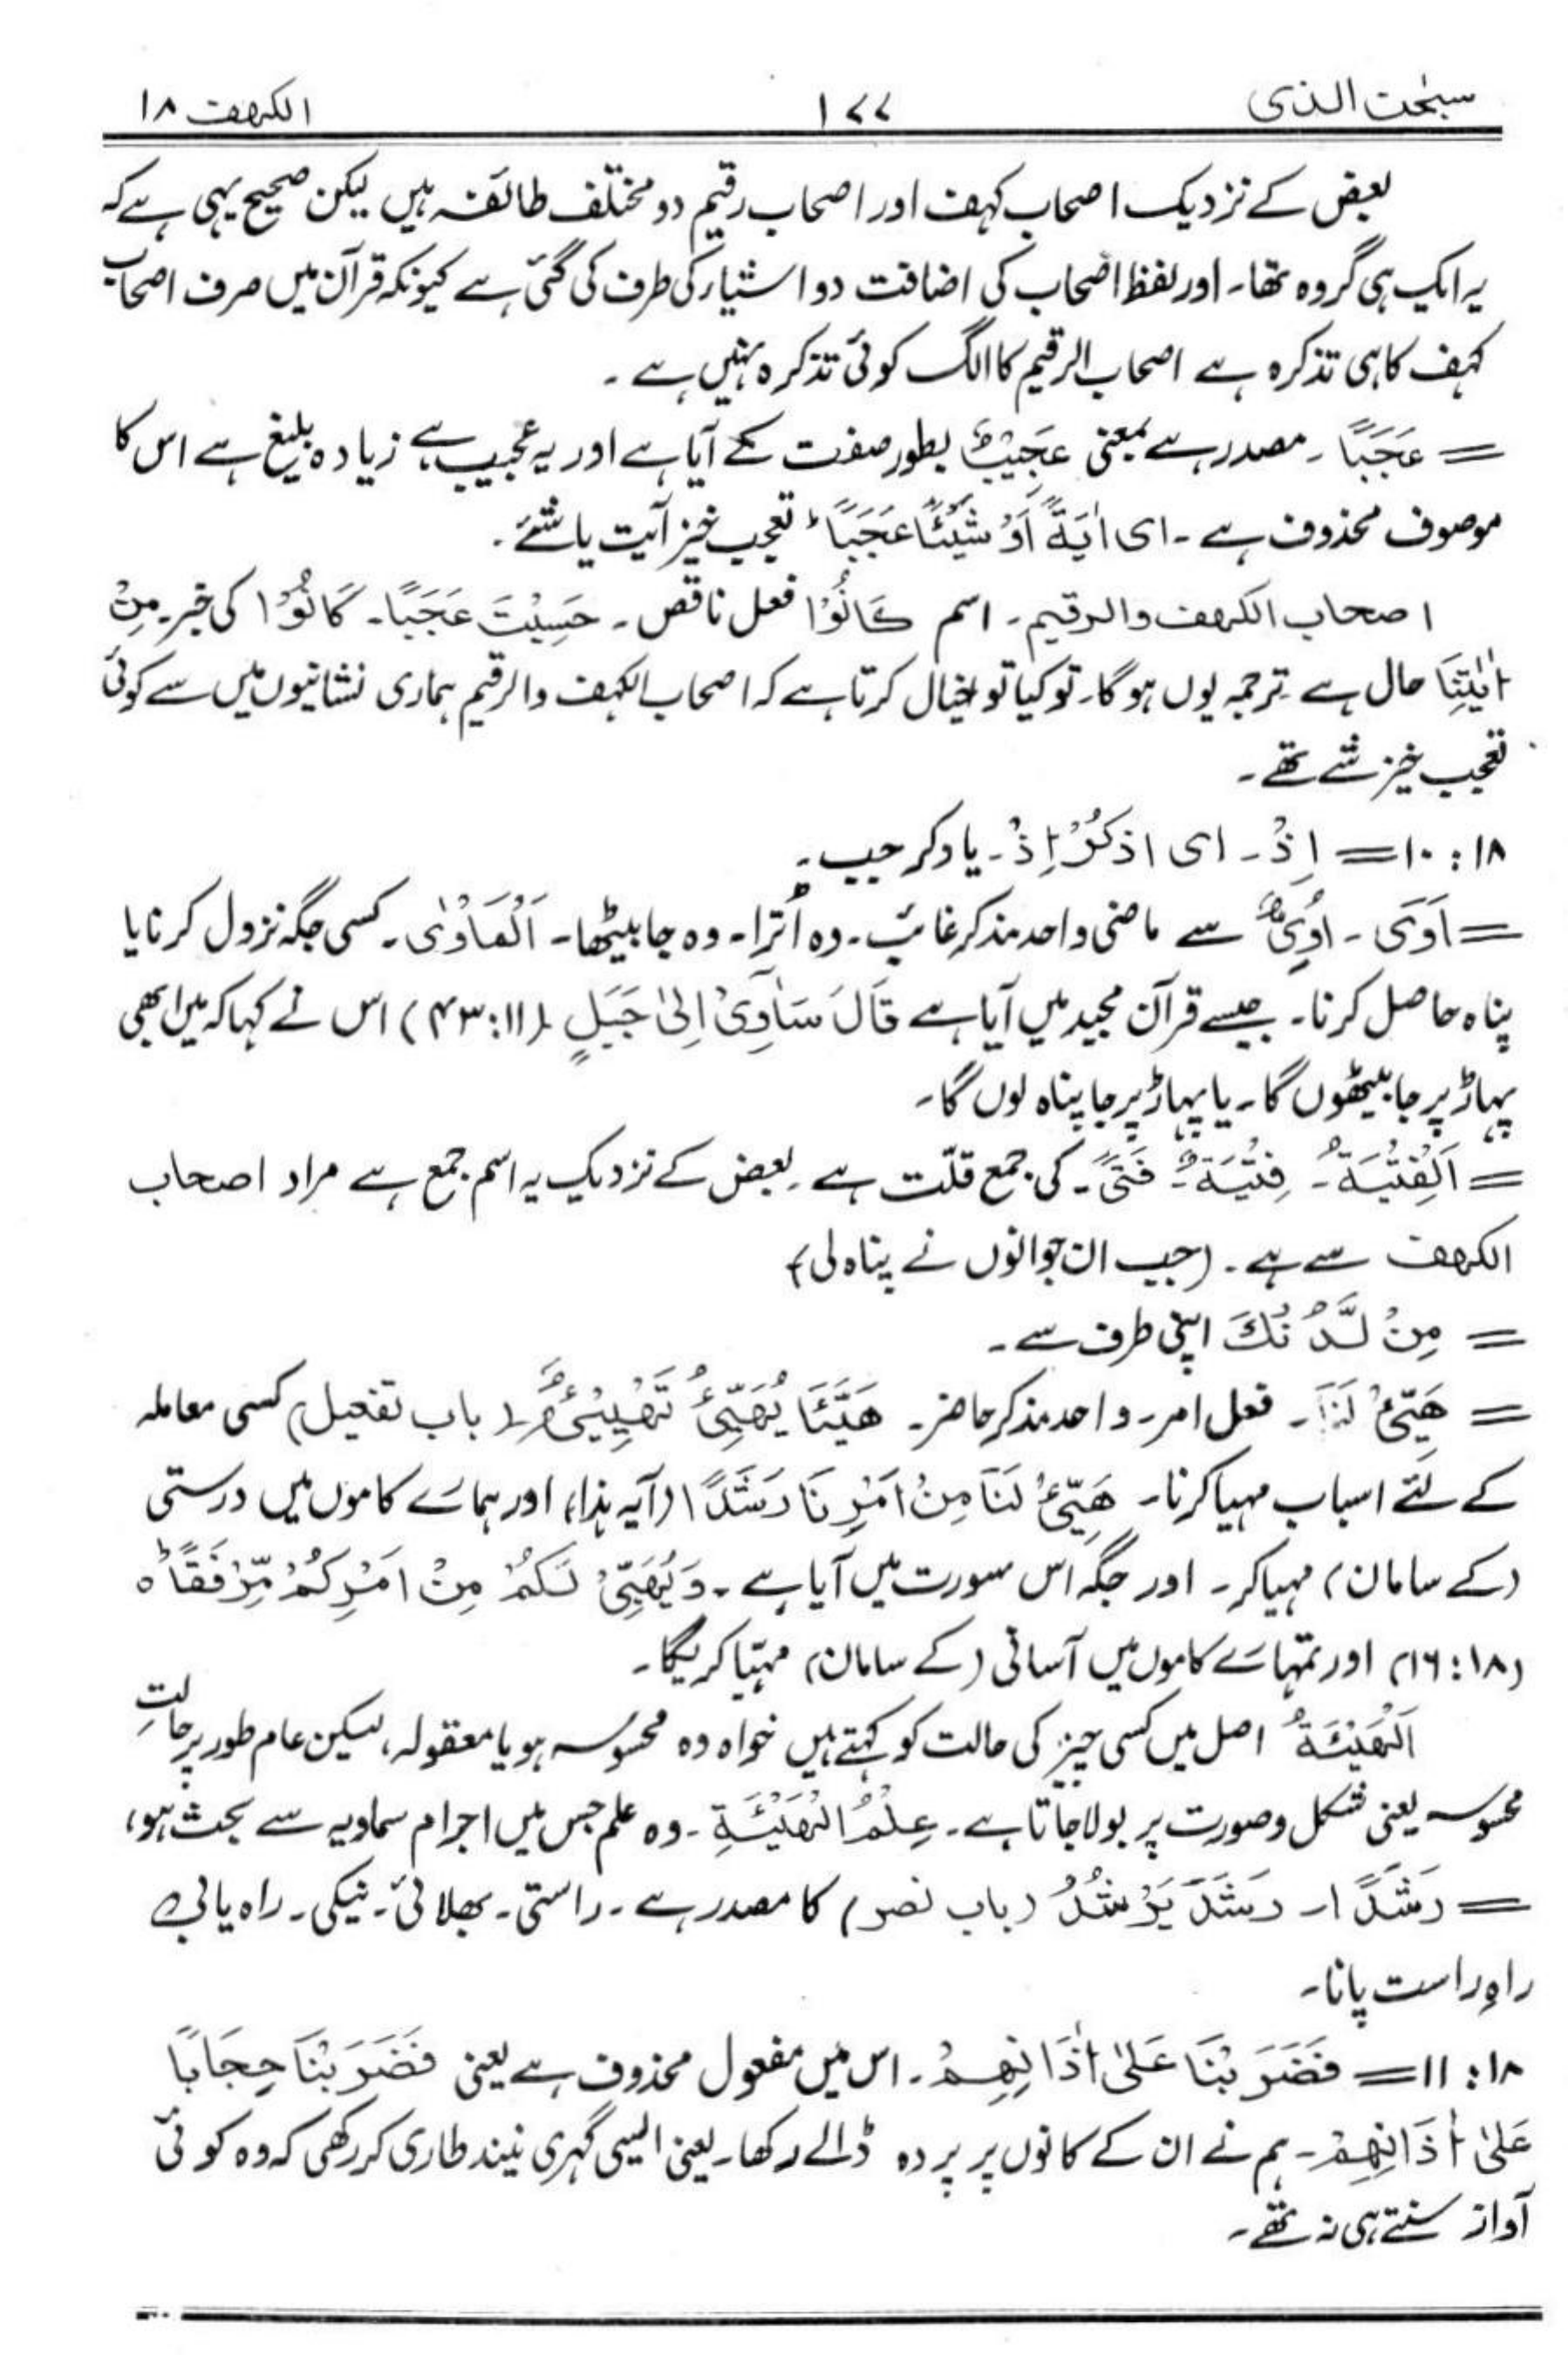 سبحٰن الذی ۱۷۷ الکہف ۱۸
بعض کے نزدیک اصحاب کہف اور اصحاب رقیم دو مختلف طائفہ ہیں لیکن صحیح یہی ہے کہ
یہ ایک ہی گروہ تھا۔ اور لفظ اصحاب کی اضافت دو اشیار کی طرف کی گئی ہے کیونکہ قرآن میں صرف اصحاب
کہف کا ہی تذکرہ ہے اصحاب الرقیم کا الگ کوئی تذکرہ نہیں ہے ۔
= عَجَبًا ۔ مصدر ہے بمعنی عَجِیْبٌ بطور صفت کے آیا ہے اور یہ عجیب سے زیادہ بلیغ ہے اس کا
موصوف محذوف ہے ۔ ای اٰیَةً اَوْ شَیْئًا عَجَبًا، تعجب خیز آیت یا شئے ۔
اصحاب الکہف والرقیم۔ اسم کَانُوْا فعل ناقص ۔ حَسِبْتَ عَجَبًا۔ کَانُوْا کی خبر۔ مِنْ
اٰیٰتِنَا حال ہے ترجمہ یوں ہوگا۔ تو کیا تو خیال کرتا ہے کہ اصحاب الکہف والرقیم ہماری نشانیوں میں سے کوئی
تعجب خیز شے تھے ۔
۱۸: ۱۰ = اِذْ ۔ ای اذکُرْ اِذْ ۔ یاد کر جب ۔
= اَوَی ۔ اُوِیٌّ سے ماضی واحد مذکر غائب ۔ وہ اُترا ۔ وہ جا بیٹھا ۔ اَلْمَاْوٰی ۔ کسی جگہ نزول کرنا یا
پناہ حاصل کرنا ۔ جیسے قرآن مجید میں آیا ہے قَالَ سَاٰوِیْ اِلٰی جَبَلٍ (۱۱: ۴۳) اس نے کہا کہ میں ابھی
پہاڑ پر جا بیٹھوں گا ۔ یا پہاڑ پر جا پناہ لوں گا ۔
= اَلْفِتْیَةُ ۔ فِتْیَةٌ ۔ فَتًی ۔ کی جمع قلّت ہے ۔ بعض کے نزدیک یہ اسم جمع ہے مراد اصحاب
الکہف سے ہے ۔ (جب ان جوانوں نے پناہ لی)
= مِنْ لَّدُنْكَ اپنی طرف سے ۔
= هَیِّئْ لَنَا ۔ فعل امر ۔ واحد مذکر حاضر ۔ هَیَّئَا یُهَیِّئُ تَهْیِیْئٌ (باب تفعیل) کسی معاملہ
کے لئے اسباب مہیا کرنا ۔ هَیِّئْ لَنَا مِنْ اَمْرِنَا رَشَدًا (آیہ ہذا) اور ہمارے کاموں میں درستی
(کے سامان) مہیا کر ۔ اور جگہ اس سورت میں آیا ہے ۔ وَیُهَیِّئْ لَکُمْ مِنْ اَمْرِکُمْ مِّرْفَقًا ہ
(۱۸: ۱۶) اور تمہارے کاموں میں آسانی (کے سامان) مہیّا کریگا ۔
اَلْهَیْئَةُ اصل میں کسی چیز کی حالت کو کہتے ہیں خواہ وہ محسوسہ ہو یا معقولہ، لیکن عام طور پر حالتِ
محسوسہ یعنی شکل و صورت پر بولا جاتا ہے ۔ عِلْمُ الْهَیْئَةِ ۔ وہ علم جس میں اجرام سماویہ سے بحث ہو،
= رَشَدًا ۔ رَشَدَ یَرْشُدُ (باب نصر) کا مصدر ہے ۔ راستی ۔ بھلائی ۔ نیکی ۔ راہ یابی
راہِ راست پانا ۔
۱۸: ۱۱ = فَضَرَبْنَا عَلٰی اٰذَانِهِمْ ۔ اس میں مفعول محذوف ہے یعنی فَضَرَبْنَا حِجَابًا
عَلٰی اٰذَانِهِمْ ۔ ہم نے ان کے کانوں پر پردہ ڈالے رکھا ۔ یعنی ایسی گہری نیند طاری کر رکھی کہ وہ کوئی
آواز سنتے ہی نہ تھے ۔